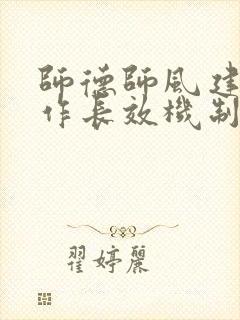 師德師風建
作長效機制
翟婷麗